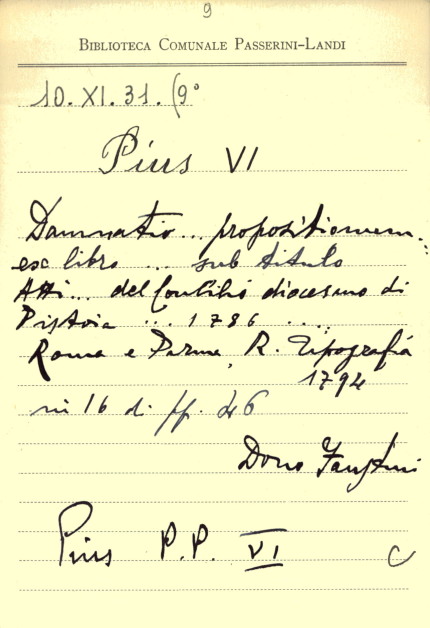 9
BIBLIOTECA COMUNALE PASSERINI-LANDI
10. XI. 31. (9°
Pius VI
Damnatio... propositionum...
ex libro ... sub titulo
Atti... del Concilio diocesano di
Pistoia ... 1786 ....
Roma e Parma, R. Tipografia
1794
in 16 di pp. 46
Dono Faustini
Pius P.P. VI
C